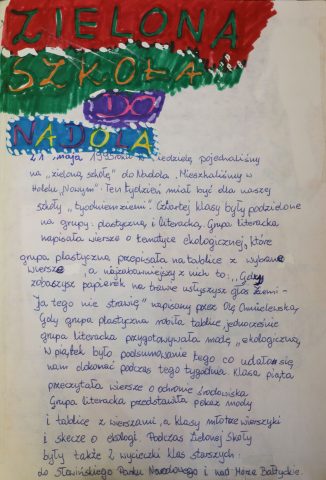 ZIELONA
SZKOŁA
DO
NADOLA
21 maja 1995 roku w niedzielę pojechaliśmy
na „zieloną szkołę" do Nadola. Mieszkaliśmy w
Hotelu „Nowym". Ten tydzień miał być dla naszej
szkoły „tygodniem ziemi". Czwartej klasy były podzielone
na grupy: plastyczną i literacką. Grupa literacka
napisała wiersze o tematyce ekologicznej, które
grupa plastyczna przepisała na tablice z wybrane
wiersze, a najzabawniejszy z nich to: „Gdy
zobaszysz papierek na trawie usłyszysz głos ziemi -
Ja tego nie strawię" napisany przez Olę Chmielewską,
Gdy grupa plastyczna robiła tablice jednocześnie
grupa literacka przygotowywała modę „ekologiczną,
W piątek było podsumowanie tego co udało się
nam dokonać podczas tego tygodnia. Klasa piąta
przeczytała wiersze o odronie środowiska
Grupa literacka przedstawiła pokaz mody
i tablice z wierszami, a klasy młotrze wierszyki
i skecze o ekologi. Podczas Zielonej Szkoły
były także 2 wycieczki klas starszych:
do Słowińskiego Parku Narodowego i nad Morze Bałtyckie.